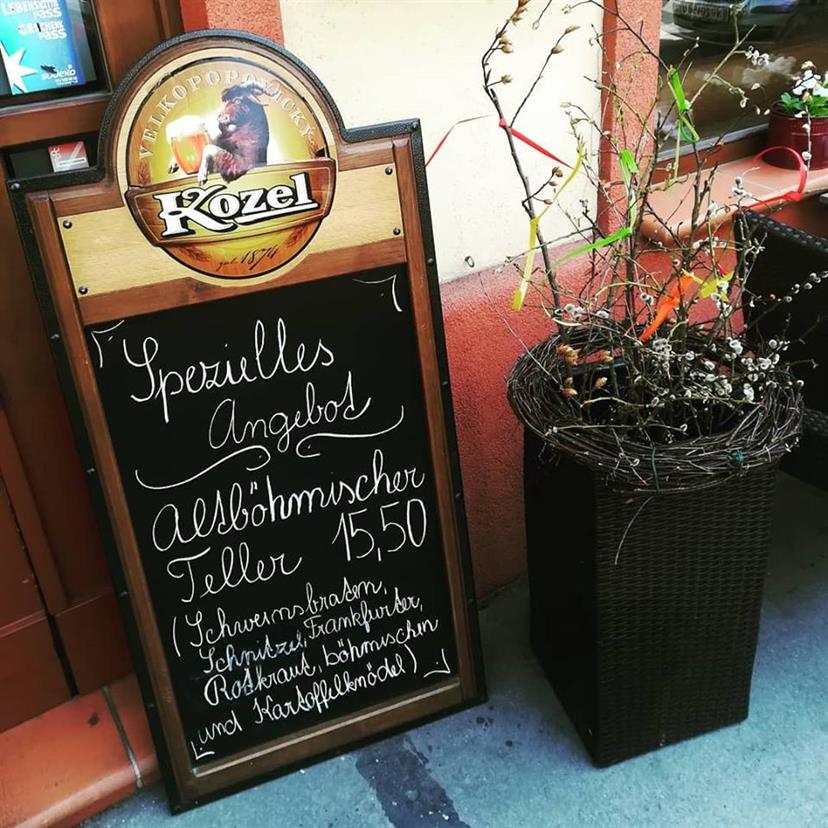 LEBENSMITTEL
PASS
GESCHENK
PASS
sodexo
VELKOPOPOVICKÝ
Kozel
1874
Spezielles
Angebot
Altböhmischer
Teller 15,50
(Schweinsbraten,
Schnitzel, Frankfurter,
Rotkraut, böhmischen
und Kartoffelknödel)